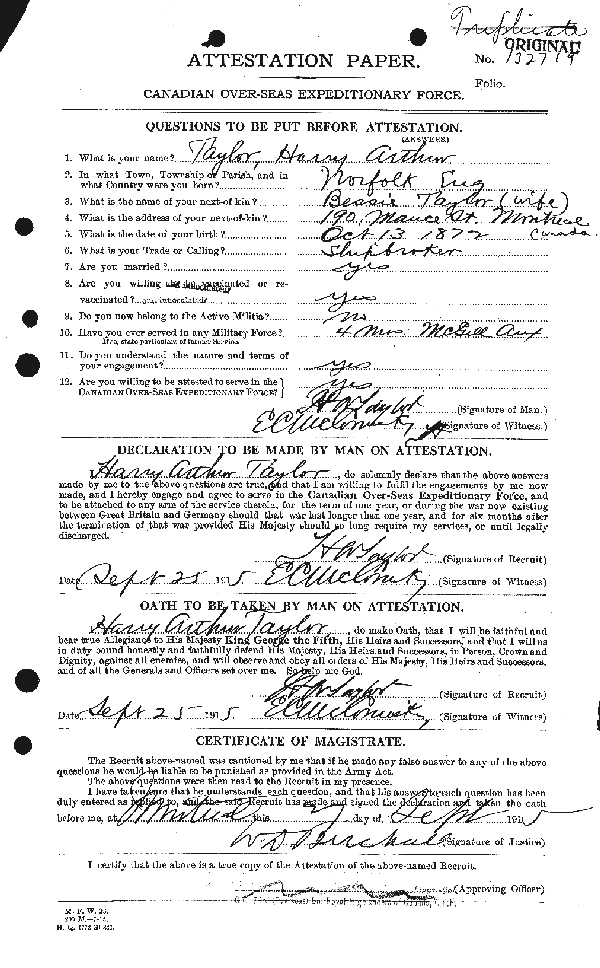 Triplicate
ORIGINAL
ATTESTATION PAPER.
No. 132719
Folio.
CANADIAN OVER-SEAS EXPEDITIONARY FORCE.
QUESTIONS TO BE PUT BEFORE ATTESTATION.
(ANSWERS)
1. What is your name? Taylor, Harry Arthur
2. In what Town, Township or Parish, and in
what Country were you born? Norfolk Eng
3. What is the name of your next-of-kin? Bessie Taylor (wife)
4. What is the address of your next-of-kin? 190, Mance St. Montreal
Canada.
5. What is the date of your birth? Oct 13 1872
6. What is your Trade or Calling? Shipbroker
7. Are you married? yes
8. Are you willing to be vaccinated or re-
vaccinated? yes
9. Do you now belong to the Active Militia? no
10. Have you ever served in any Military Force? 4 mos. McGill Aux
If so, state particulars of former Service
11. Do you understand the nature and terms of
your engagement? yes
12. Are you willing to be attested to serve in the
CANADIAN OVER-SEAS EXPEDITIONARY FORCE? yes
H A Taylor (Signature of Man.)
(Signature of Witness.)
DECLARATION TO BE MADE BY MAN ON ATTESTATION.
Harry Arthur Taylor, do solemnly declare that the above answers
made by me to the above questions are true, and that I am willing to fulfil the engagements by me now
made, and I hereby engage and agree to serve in the Canadian Over-Seas Expeditionary Force, and
to be attached to any arm of the service therein, for the term of one year, or during the war now existing
between Great Britain and Germany should that war last longer than one year, and for six months after
the termination of that war provided His Majesty should so long require my services, or until legally
discharged.
H A Taylor (Signature of Recruit)
Date Sept 25 1915 (Signature of Witness)
OATH TO BE TAKEN BY MAN ON ATTESTATION.
Harry Arthur Taylor, do make Oath, that I will be faithful and
bear true Allegiance to His Majesty King George the Fifth, His Heirs and Successors, and that I will as
in duty bound honestly and faithfully defend His Majesty, His Heirs and Successors, in Person, Crown and
Dignity, against all enemies, and will observe and obey all orders of His Majesty, His Heirs and Successors,
and of all the Generals and Officers set over me. So help me God.
H A Taylor (Signature of Recruit)
Date Sept 25 1915 (Signature of Witness)
CERTIFICATE OF MAGISTRATE.
The Recruit above-named was cautioned by me that if he made any false answer to any of the above
questions he would be liable to be punished as provided in the Army Act.
The above questions were then read to the Recruit in my presence.
I have taken care that he understands each question, and that his answer to each question has been
duly entered as replied to, and the said Recruit has made and signed the declaration and taken the oath
before me, at Montreal this 27 day of Sept 1915
(Signature of Justice)
I certify that the above is a true copy of the Attestation of the above-named Recruit.
(Approving Officer)
M. F. W. 23.